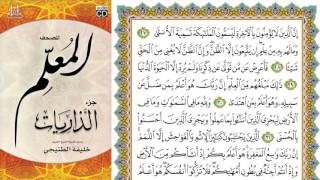 المصحف
المعلم
جزء
الذاريات
خليفة الطنيجي
إِنَّ الَّذِينَ لَا يُؤْمِنُونَ بِالْآخِرَةِ لَيُسَمُّونَ الْمَلَائِكَةَ تَسْمِيَةَ الْأُنْثَىٰ ٢٧
وَمَا لَهُم بِهِ مِنْ عِلْمٍ إِن يَتَّبِعُونَ إِلَّا الظَّنَّ وَإِنَّ الظَّنَّ لَا يُغْنِي مِنَ الْحَقِّ
شَيْئًا ٢٨ فَأَعْرِضْ عَن مَّن تَوَلَّىٰ عَن ذِكْرِنَا وَلَمْ يُرِدْ إِلَّا الْحَيَاةَ الدُّنْيَا
٢٩ ذَٰلِكَ مَبْلَغُهُم مِّنَ الْعِلْمِ إِنَّ رَبَّكَ هُوَ أَعْلَمُ بِمَن ضَلَّ عَن
سَبِيلِهِ وَهُوَ أَعْلَمُ بِمَنِ اهْتَدَىٰ ٣٠ وَلِلَّهِ مَا فِي السَّمَاوَاتِ وَمَا فِي
الْأَرْضِ لِيَجْزِيَ الَّذِينَ أَسَاءُوا بِمَا عَمِلُوا وَيَجْزِيَ الَّذِينَ أَحْسَنُوا
بِالْحُسْنَى ٣١ الَّذِينَ يَجْتَنِبُونَ كَبَائِرَ الْإِثْمِ وَالْفَوَاحِشَ إِلَّا اللَّمَمَ
إِنَّ رَبَّكَ وَاسِعُ الْمَغْفِرَةِ هُوَ أَعْلَمُ بِكُمْ إِذْ أَنشَأَكُم مِّنَ الْأَرْضِ
وَإِذْ أَنتُمْ أَجِنَّةٌ فِي بُطُونِ أُمَّهَاتِكُمْ فَلَا تُزَكُّوا أَنفُسَكُمْ هُوَ أَعْلَمُ